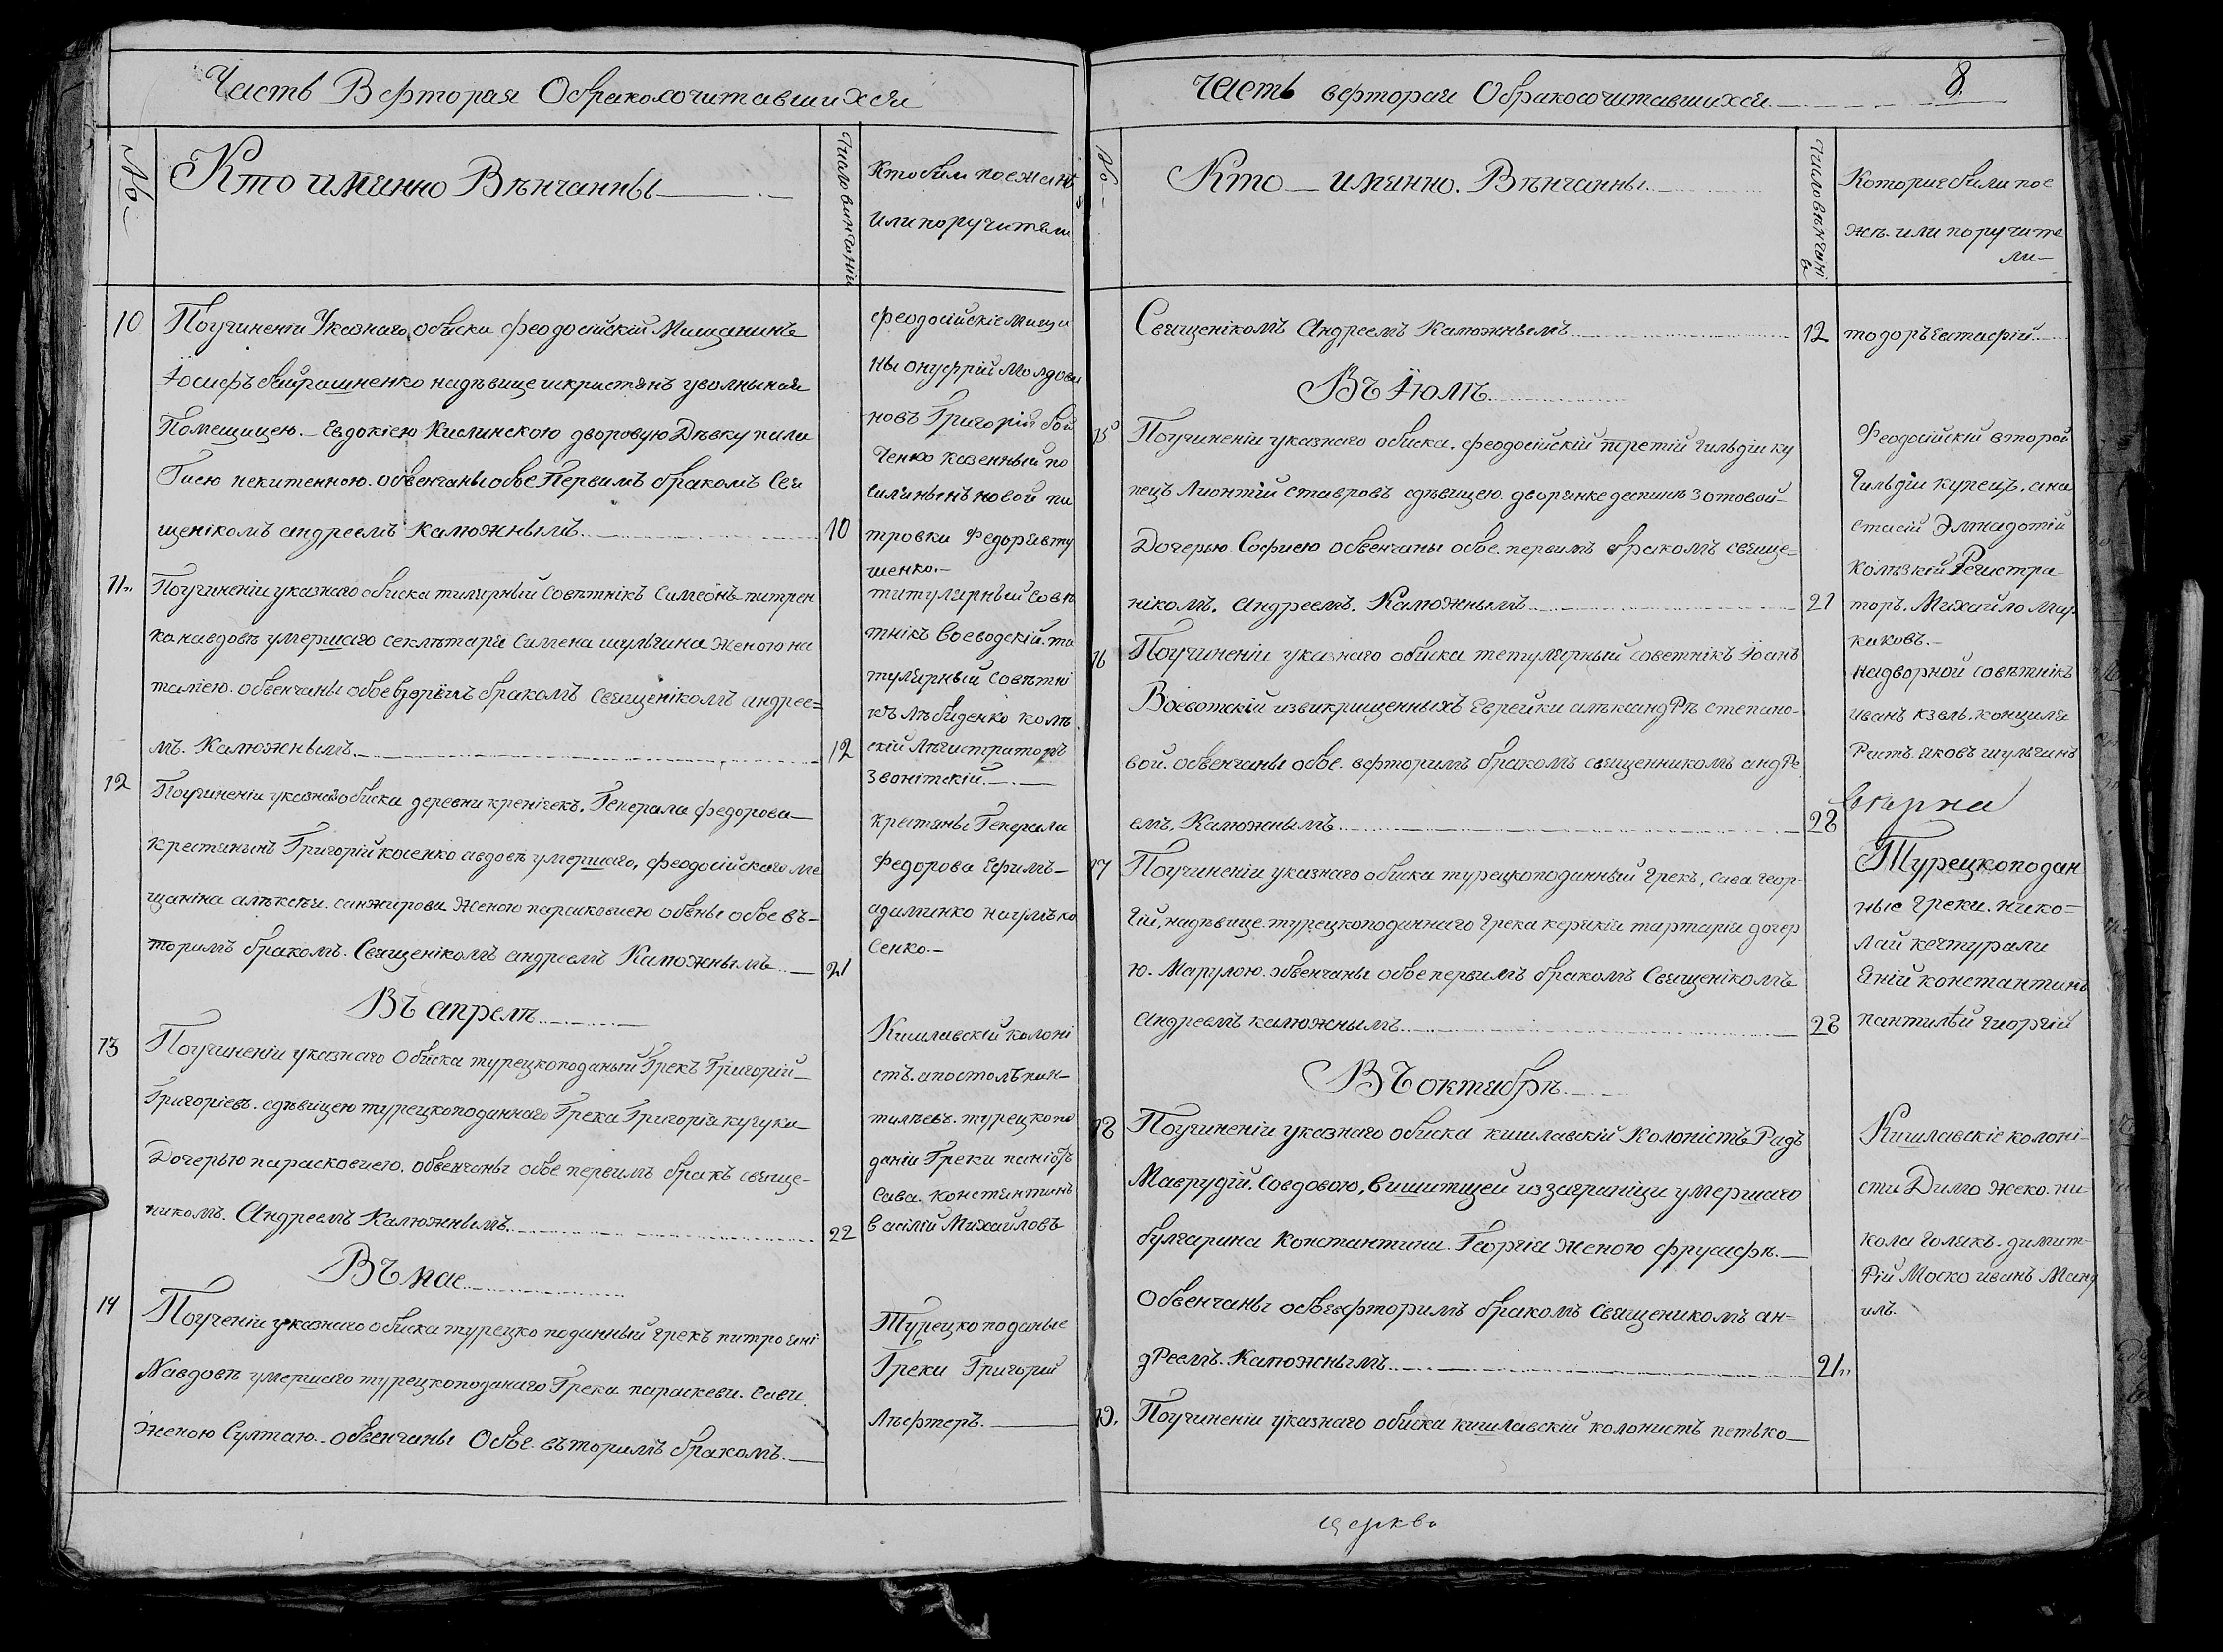 Часть Вефторая Обракосочитавшихся
№
Кто имянно Вѣнчанны
Число винчаній
Кто били поезжанѣ
или поручители
10
Поучинении Указнаго обиска феодосийский Мищанинъ
Їосифъ надѣвице искристянъ уволныная
Помещицею Евдокіею Кислинскою дворовую Дѣвку пила
Гиею никитенною. обвенчаны обое Первимъ бракомъ Свя
щеникомъ андреемъ Калюжнымъ
10
феодосийские мища
ны онуфрий Молдова
новъ Григорий бой
ченко казенный по
силянынъ новой пи
тровки Федоръ явту
шенко.
11
Поучинении указнаго обиска тилярный Совѣтникъ Симеонъ питрен
ко навдовѣ умершаго секлѣтаря Симена шульгина женою на
талиею. обвенчаны обое вдорымъ бракомъ Священикомъ андрее=
мъ. Калюжнымъ
12
титулярный совѣ
тникъ Воеводский. ти
тулярный Совѣтни
къ лѣбиденко колѣ
ский лѣгистраторъ
Звонитский
12
Поучинении указнаго обиска деревни кренічекъ. Генерала федорова
крестянинъ Григорий косенко авдовѣ умершаго, феодосийскаго ме
щанина алѣксѣи. санжирова Женою парасковиею обвны обое въ-
торимъ бракомъ. Священикомъ андреемъ Калюжнымъ
21
крестяны Генерала
Федорова Ефимъ
адаминко
сенко.
Въ апрелѣ
13
Поучинении указнаго Обиска турецкоподаный Грекъ Григорий
Григориевъ. сдѣвицею турецкоподаннаго Грека Григория кугука
Дочерью парасковиею. обвенчаны обое первимъ бракъ свяще-
никомъ. Андреемъ Калюжнымъ
22
Кишлавский колони
стъ. апостолъ пан-
тилѣевъ. турецкопо
дании Греки
Сава. Константинъ
василий Михайловъ
Въ мае
14
Поучении указнаго обиска турецко поданный грекъ питро яни
Навдовѣ умершаго турецкоподанаго Грека параскеви. Сави.
Женою Султаю. обвенчаны Обое. въторимъ бракомъ.
Турецко поданые
Греки Григорий
Лѣфтеръ.
Часть вефторая Обракосочитавшихся
8
№
Кто имянно. Вѣнчанны
Число вѣнчани
я
Которие били пое
жѣ. или поручите
ли
Священикомъ Андреемъ Калюжнымъ
12
тодоръ Евтафий
Въ Їюлѣ
15
Поучинении указнаго обиска. феодосийский третий гильдии ку
пецъ Лионтий Ставровъ сдѣвицею. дворянке деспинѣ Зотовой
Дочерью. Софиею обвенчаны обое. первимъ бракомъ свяще=
никомъ. Андреемъ. Калюжнымъ
21
Феодосийский второй
Гильдии купецъ. ана
стасий
Колѣзкий Регистра
торъ. Михайло Мар
каковъ.
16
Поучинении указнаго обиска тетулярный советникъ Їоанъ
Воевотский извикрищенныхъ Еврейки алѣксандрѣ степано-
вой. обвенчаны обое. вефторимъ бракомъ священникомъ андре
емъ. Калюжнымъ
28
надворной совѣтникъ
иванъ кзель. концыля
Ристъ. яковъ шульгинъ
17
Поучинении указнаго обиска турецкоподанный грекъ, сава геор-
гий, надѣвице. турецкоподаннаго грека керякии тартария дочер
ю. Марулою. обвенчаны обое первимъ бракомъ Священикомъ
Андреемъ калюжнымъ
28
Турецкоподан
ные греки. нико=
лай кечтурали
Яний константинъ
пантилѣй гиоргий
Въ октябрѣ
18
Поучинении указнаго обиска кишлавский Колонистъ Радъ
Маврудий. Совдовою, Вишитщей иззаграници умершаго
булгарина Константина. Георгия Женою
Обвенчаны обое вефторимъ бракомъ Священикомъ ан=
дреемъ. Калюжнымъ
21
Кишлавские колони-
сти Димо жеко. ни-
кола голякъ. димит-
рий Моско иванъ Ману
илъ.
19.
Поучинении указнаго обиска кишлавский колонистъ петько
церкви